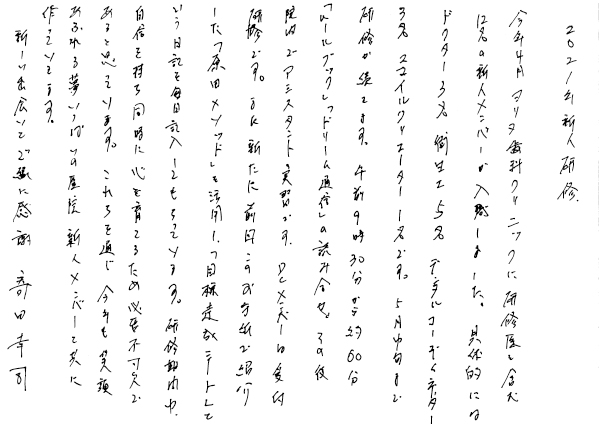 2021年新人研修
今年4月 アリタ歯科クリニックに 研修医を含む
12名の新人メンバーが入職しました。 具体的には
ドクター3名 衛生士5名 デンタルコーディネーター
3名 スマイルクリエーター1名です。 5月中旬まで
研修が続きます。 午前9時30分から約60分
「ルールブック」「ドリーム通信」の読み合せ。その後
院内でアシスタントの実習です。DCメンバーは受付
研修です。さらに新たに前回このお手紙で紹介
した「原田メソッド」を活用し、「目標達成シート」と
いう日記を毎日記入してもらっています。研修期間中、
自信を持ち同時に心を育てるため必要不可欠で
あると思っています。これらを通じ 今年も笑顔
あふれる夢いっぱいの医院 新人メンバーと共に
作っていきます。
新しい出会いとご縁に感謝 幸司